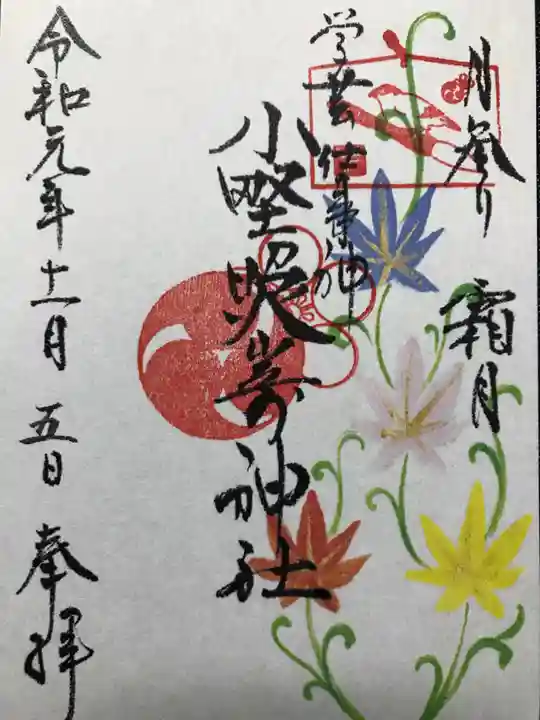 月参り 霜月
学芸 仕事の神
小野照崎神社
令和元年十一月五日 奉拝